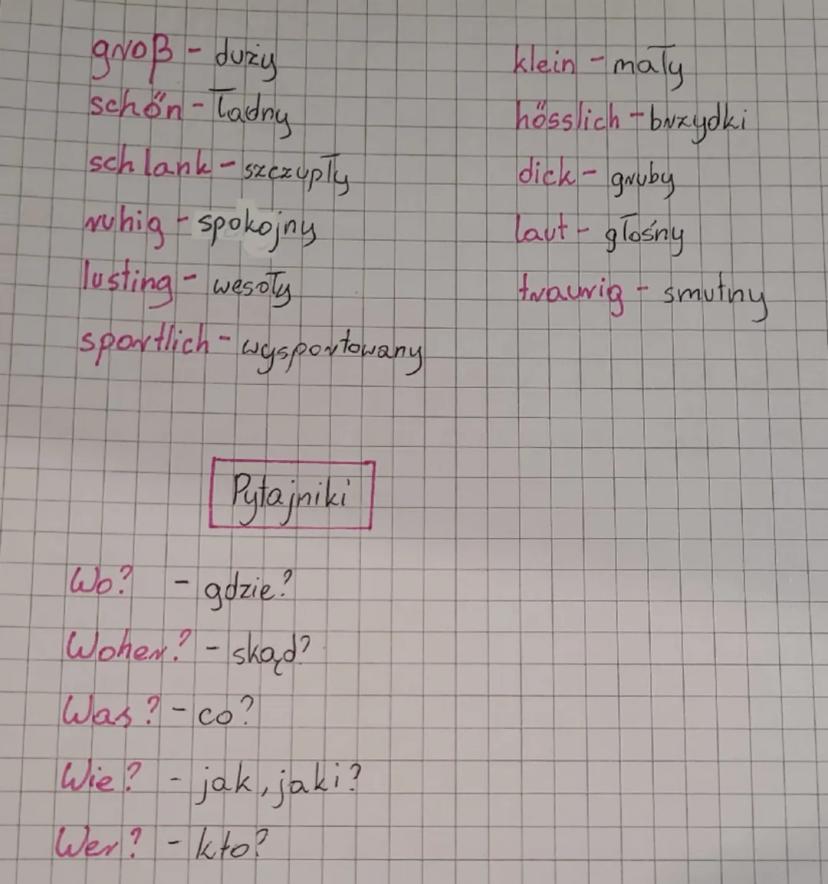 groß - duży
schön - ładny
schlank - szczupły
ruhig - spokojny
lusting - wesoły
sportlich - wysportowany
klein - mały
hösslich - brzydki
dick - gruby
laut - głośny
traurig - smutny
Pytajniki
Wo? - gdzie?
Woher? - skąd?
Was? - co?
Wie? - jak, jaki?
Wer? - kto?